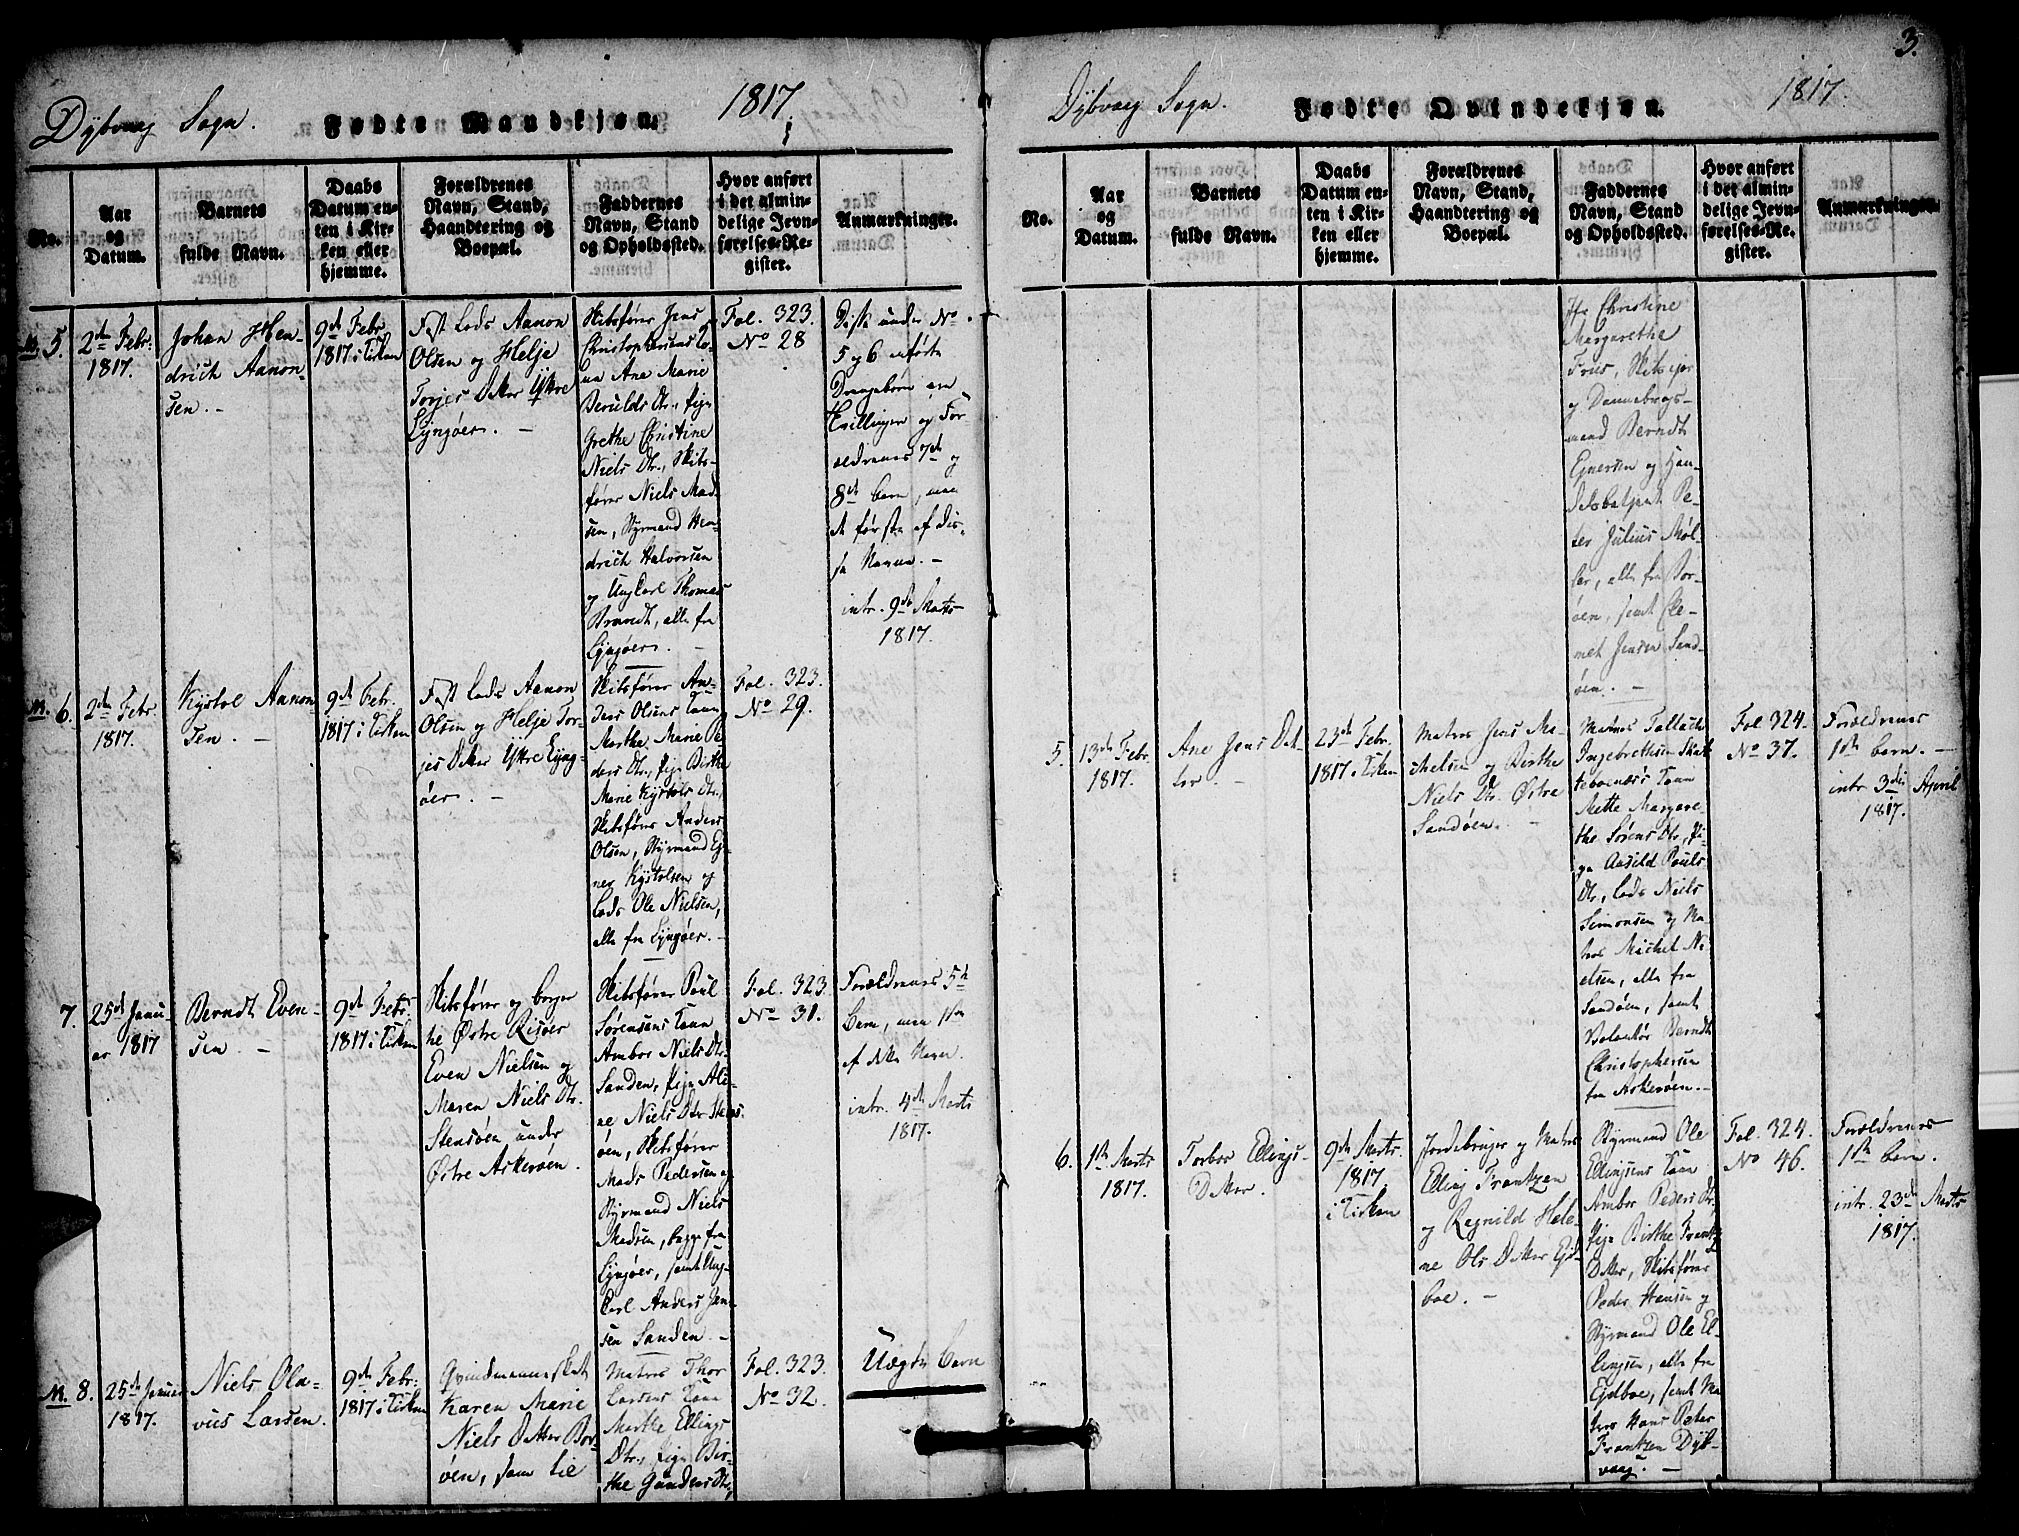 Dybvaag Sogn.
Fødte Mandkjøn.
1817.
No.
Aar
og
Datum.
Barnets
fulde Navn.
Daabs
Datum en-
ten i Kir-
ken eller
hjemme.
Forældrenes
Navn, Stand,
Haandtering og
Boepæl.
Faddernes
Navn, Stand
og Opholdssted.
Hvor anført
i det almin-
delige Jevn-
førelses-Re-
gister.
Anmærkninger.
5.
2den Febr.
1817.
Johan Hen-
drich Aanon-
sen. -
9de Febr.
1817 i Kirken
Fast Lods Aanon
Olsen og Helje
Torjes Datter Yttre
Lyngøer. -
Skibsfører Jens
Christophersens Ko-
na Ane Marie
Berulds Dtr., Pige
Grethe Christine
Niels Dtr., Skibs-
fører Niels Mad-
sen, Styrmand Hen-
drich Halvorsen
og Ungkarl Thomas
Brandt, alle fra
Lyngøer. -
Fol. 323.
No 28
Disse under No
5 og 6 anførte
Drengebørn ere
Tvillinger og For-
ældrenes 7de og
8de Barn, men
de første af dis-
se Navne. -
intr. 9de Marts
1817.
6.
2den Febr.
1817.
Kystol Aanon-
sen. -
9de Febr.
1817 i Kirken
Fast Lods Aanon
Olsen og Helje Tor-
jes Datter Yttre Lyng-
øer. -
Skibsfører An-
ders Olsens Kone
Marthe Marie Pe-
ders Dtr., Pige Birthe
Marie Kystols Dtr.,
Skibsfører Anders
Olsen, Styrmand Ej-
ner Kystolsen og
Lods Ole Nielsen,
alle fra Lyngøer. -
Fol. 323.
No 29.
7.
25de Janu-
ar 1817
Berndt Even-
sen. -
9de Febr.
1817 i Kirken
Skibsfører og Borger
til Østre Risøer
Even Nielsen og
Maren Niels Dtr.
Stensøen under
Østre Askerøen.
Skibsfører Poul
Sørensens Kone
Ambor Niels Dtr.
Sanden, Pige Ali-
ne Niels Dtr Stens-
øen, Skibsfører
Mads Pedersen og
Styrmand Niels
Madsen, begge fra
Lyngøer, samt Ung-
Karl Anders Jen-
sen Sanden. -
Fol. 323
No 31.
Forældrenes 5te
Barn, men 1ste
af dette Navn.
intr. 4de Marts
1817.
8.
25de Januar
1817.
Niels Ola-
vus Larsen.
9de Febr.
1817 i Kirken
Qvindmennesket
Karen Marie
Niels Datter Bor-
øen, som til
Matros Thor
Larsens Kone
Marthe Ellings
Dtr., Pige Bir-
the Gunders Dtr.,
Fol. 323.
No 32.
Uægte Barn
3.
Dybvaag Sogn.
Fødte Qvindekjøn.
1817.
No.
Aar
og
Datum.
Barnets
fulde Navn.
Daabs
Datum en-
ten i Kir-
ken eller
hjemme.
Forældrenes
Navn, Stand,
Haandtering og
Boepæl.
Faddernes
Navn, Stand
og Opholdssted.
Hvor anført
i det almin-
delige Jevn-
førelses-Re-
gister.
Anmærkninger.
Jfr Christine
Margarethe
Friis, Skibsfører
og Dannebrogs-
mand Berndt
Ejnersen og Han-
delsbetjent Pe-
ter Julius Møl-
ler, alle fra Bor-
øen, samt Cle-
met Jensen Sand-
øen. -
5.
13de Febr.
1817.
Ane Jens Dat-
ter -
23de Febr.
1817 i Kirken
Matros Jens Mi-
chelsen og Birthe
Niels Dtr. Østre
Sandøen. -
Matros Tallach
Ingebrethsen Skat-
tebonæss Kone
Mette Margare-
the Sørens Dtr., Pi-
ge Aasild Pouls
Dtr., Lods Niels
Simonsen og Ma-
tros Michel Ni-
elsen, alle fra
Sandøen, samt
Berndt
Christophersen
fra Askerøen. -
Fol. 324.
No 37.
Forældrenes
1ste Barn. -
intr. 3die April
1817.
6.
1ste Marts
1817.
Torbor Ellings-
Datter.
9de Marts.
1817
i Kirken
Jordebruger og Matros
Elling Frantzen
og Regnild Hele-
ne Ols Datter Ejd-
boe. -
Styrmand Ole
Ellingsens Kone
Ambor Peders Dtr.
Pige Birthe Frantz
Datter, Skibsfører
Peder Hansen og
Styrmand Ole El-
lingsen, alle fra
Ejdboe, samt Ma-
tros Hans Peter
Frantzen Dyb-
vaag. -
Fol. 324.
No 46.
Forældrenes
1ste Barn.
intr. 23de Marts
1817.